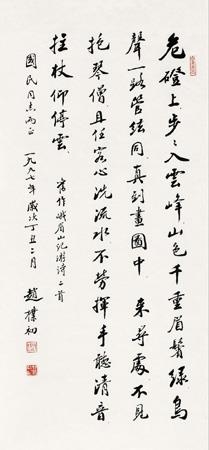 危磴上步々入雲峰山色千重眉鬢綠鳥
聲一路管絃同真到畫圖中 来尋處不見
抱琴僧且任客心洗流水不勞揮手聽清音
拄杖仰停雲
舊作峨眉山紀游詩二首
國民同志正 一九九七年歲次丁丑二月 趙樸初